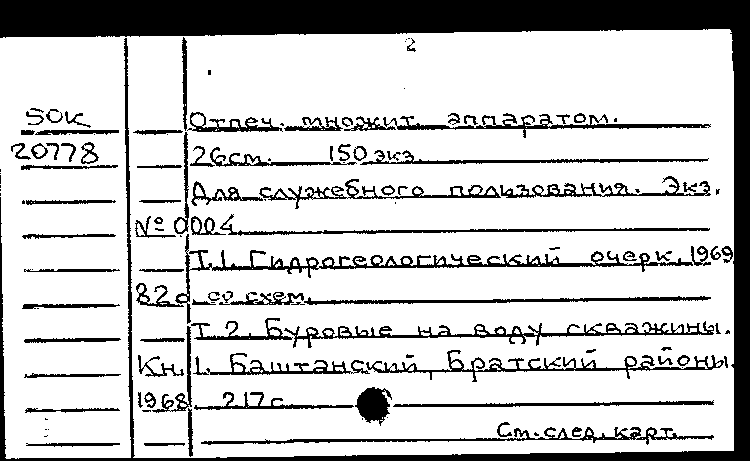 2
50К Отпеч. множит. аппаратом.
20778 26см. 150 экз.
Для служебного пользования. Экз.
№ 0004.
Т.1. Гидрогеологический очерк, 1969
82с со схем.
Т 2. Буровые на воду скважины.
Кн. 1. Баштанский, Братский районы.
1968. 217с
См. след. карт.